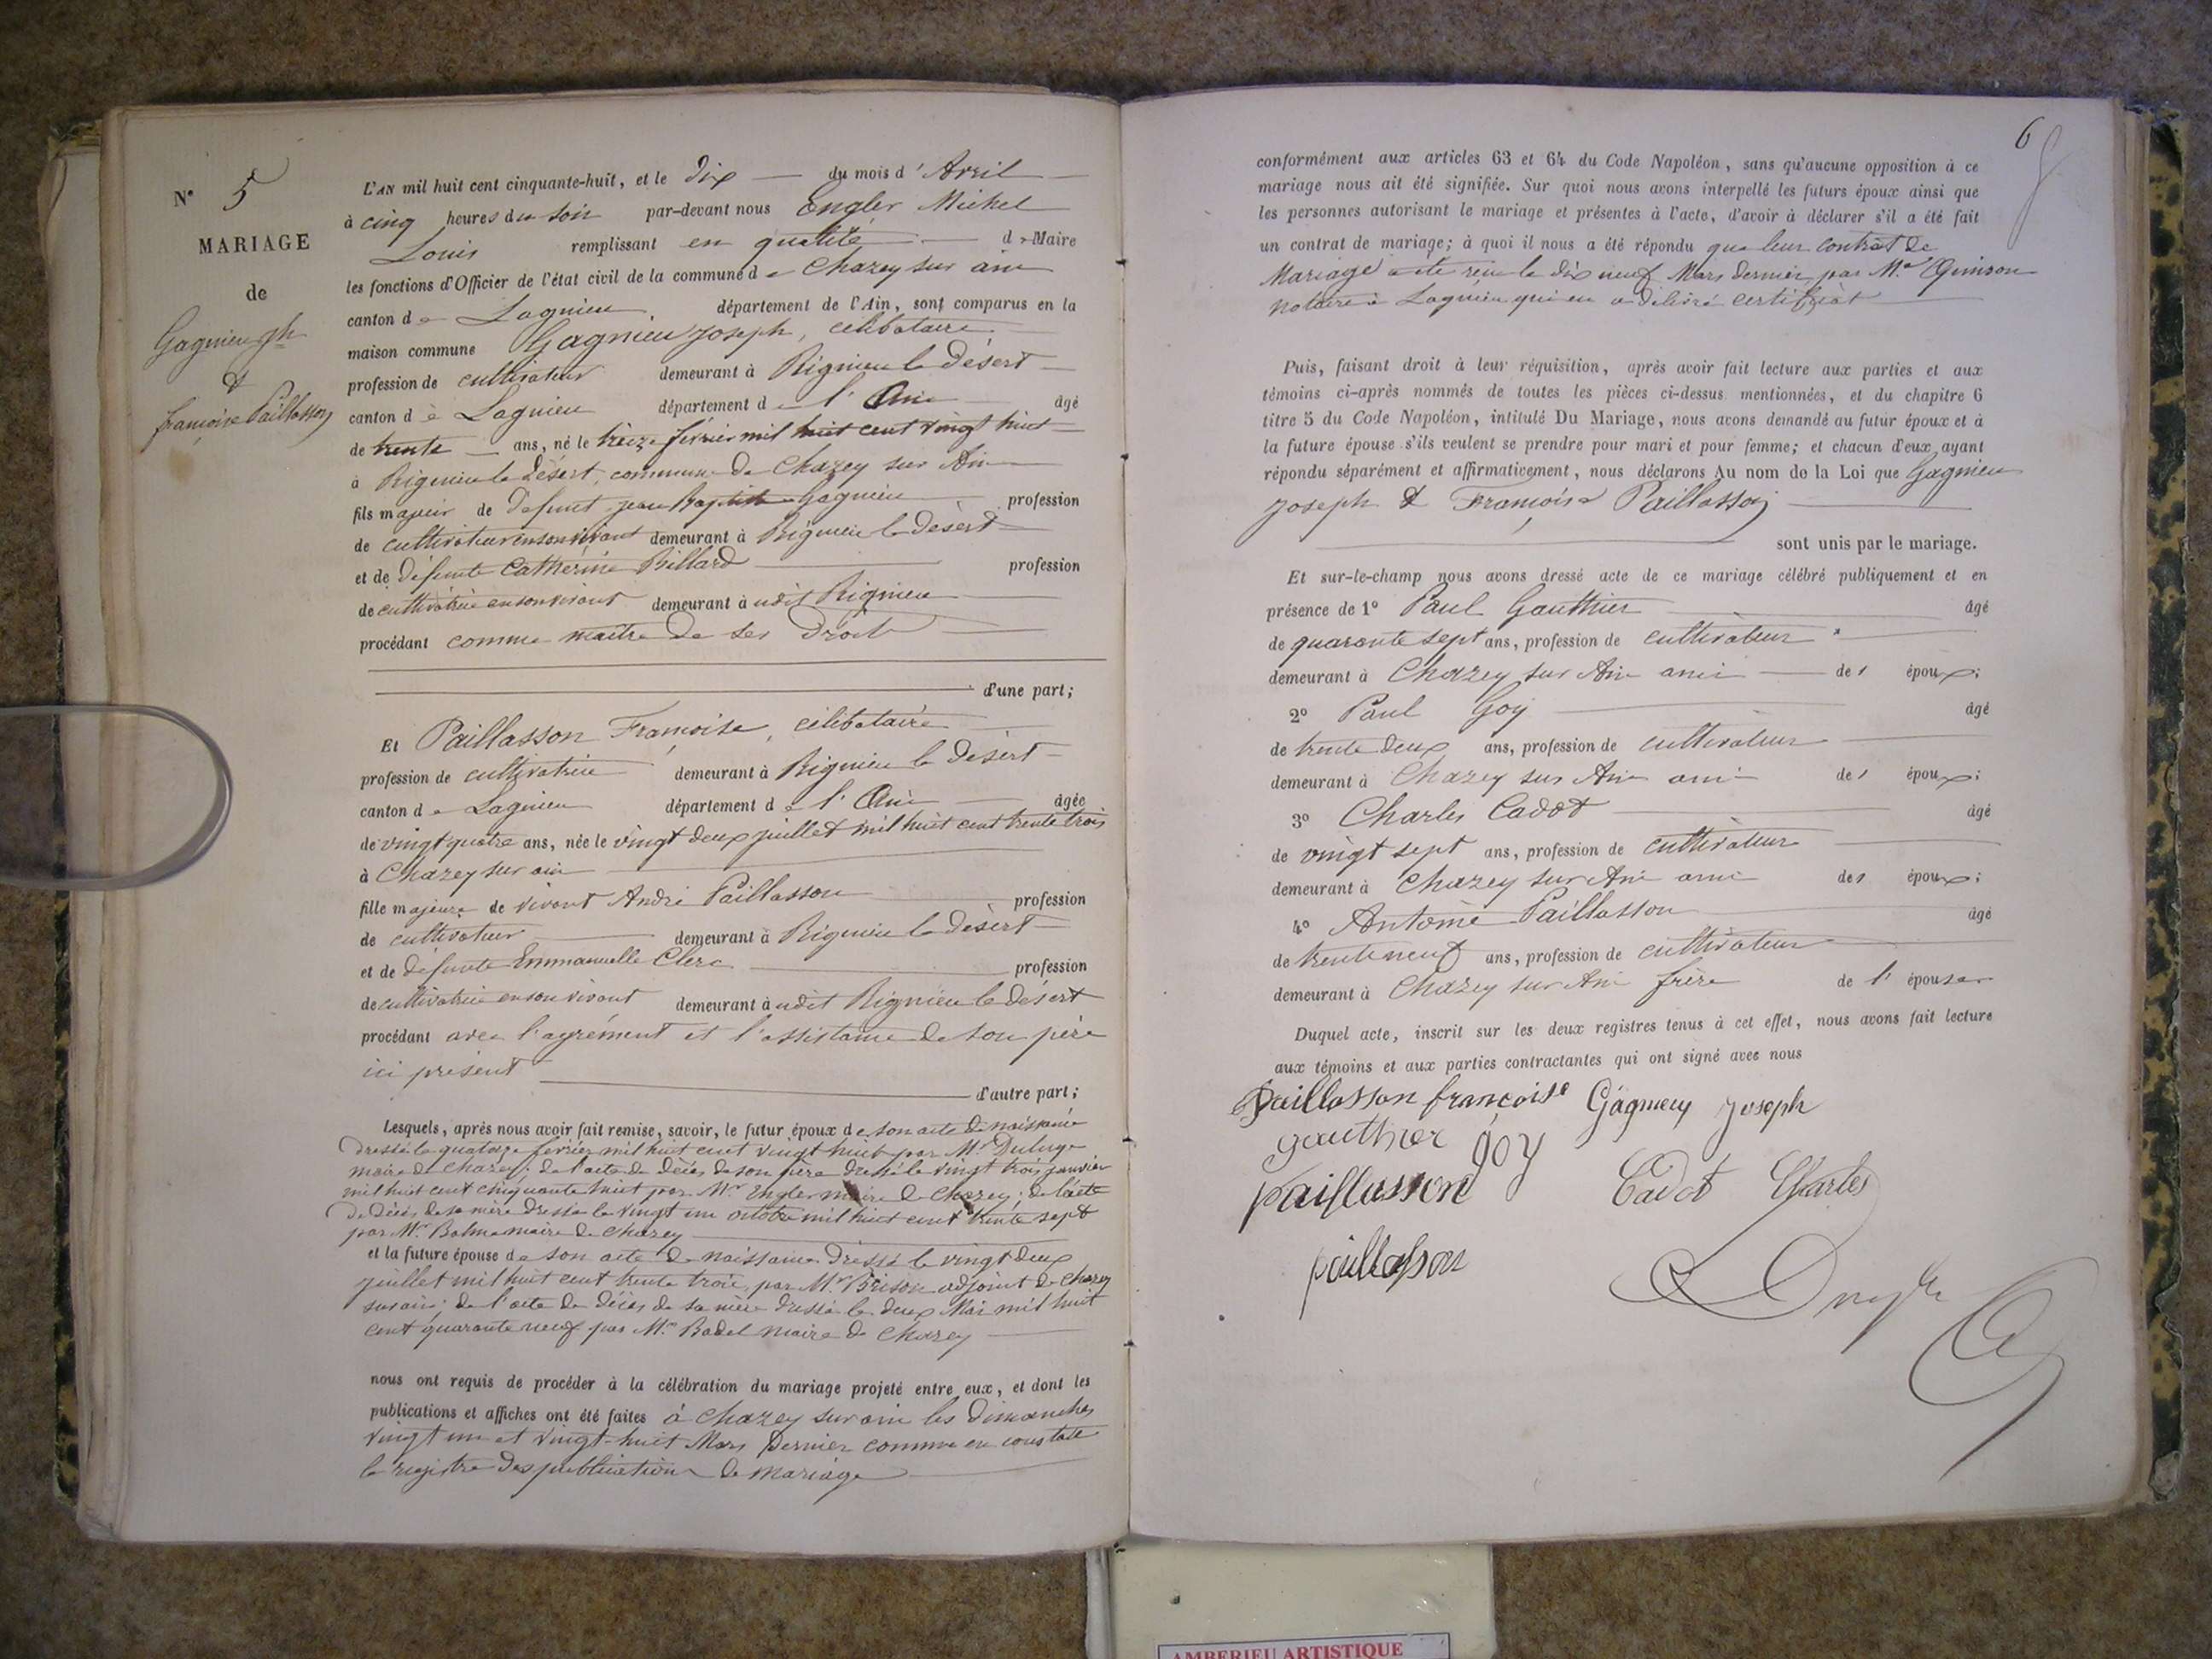 N° 5
MARIAGE
de
Gagnieu Jh
&
françoise Paillasson
L'AN mil huit cent cinquante-huit, et le Dix du mois d'Avril
à cinq heures du soir par-devant nous Engler Michel
Louis remplissant en qualité de Maire
les fonctions d'Officier de l'état civil de la commune de Chazey sur ain
canton de Lagnieu département de l'Ain, sont comparus en la
maison commune Gagnieu Joseph, célibataire
profession de cultivateur demeurant à Rignieu le Désert
canton de Lagnieu département de l'Ain âgé
de trente ans, né le treize février mil huit cent vingt huit
à Rignieu le Désert, commune de Chazey sur Ain
fils majeur de défunt jean Baptiste Gagnieu profession
de cultivateur en son vivant demeurant à Rignieu le Désert
et de défunte Catherine Billard profession
de cultivatrice en son vivant demeurant à udit Rignieu
procédant comme maître de ses Droits
d'une part;
Et Paillasson Françoise, célibataire
profession de cultivatrice demeurant à Rignieu le Désert
canton de Lagnieu département de l'Ain âgée
de vingt quatre ans, née le vingt deux juillet mil huit cent trente trois
à Chazey sur ain
fille majeure de vivant André Paillasson profession
de cultivateur demeurant à Rignieu le Désert
et de défunte Emmanuelle Clerc profession
de cultivatrice en son vivant demeurant à udit Rignieu le désert
procédant avec l'agrément et l'assistance de son père
ici présent
d'autre part;
Lesquels, après nous avoir fait remise, savoir, le futur époux de son acte de naissance
dressé le quatorze février mil huit cent vingt huit par Mr
maire de Chazey; de l'acte de décès de son père dressé le vingt trois janvier
mil huit cent cinquante huit par Mr Engler maire de Chazey; de l'acte
de décès de sa mère dressé le vingt un octobre mil huit cent trente sept
par Mr maire de Chazey
et la future épouse de son acte de naissance dressé le vingt deux
juillet mil huit cent trente trois par Mr Brison adjoint de Chazey
sur ain; de l'acte de décès de sa mère dressé le deux Mai mil huit
cent quarante neuf par Mr Badel maire de Chazey
nous ont requis de procéder à la célébration du mariage projeté entre eux, et dont les
publications et affiches ont été faites à Chazey sur ain les dimanches
vingt un et vingt-huit Mars dernier comme en constate
le registre des publications de mariage
6
conformément aux articles 63 et 64 du Code Napoléon, sans qu'aucune opposition à ce
mariage nous ait été signifiée. Sur quoi nous avons interpellé les futurs époux ainsi que
les personnes autorisant le mariage et présentes à l'acte, d'avoir à déclarer s'il a été fait
un contrat de mariage; à quoi il nous a été répondu que leur contrat de
Mariage a été reçu le dix neuf Mars dernier par Me Quinson
notaire à Lagnieu qui en a délivré certificat
Puis, faisant droit à leur réquisition, après avoir fait lecture aux parties et aux
témoins ci-après nommés de toutes les pièces ci-dessus mentionnées, et du chapitre 6
titre 5 du Code Napoléon, intitulé Du Mariage, nous avons demandé au futur époux et à
la future épouse s'ils veulent se prendre pour mari et pour femme; et chacun d'eux ayant
répondu séparément et affirmativement, nous déclarons Au nom de la Loi que Gagnieu
Joseph & Françoise Paillasson
sont unis par le mariage.
Et sur-le-champ nous avons dressé acte de ce mariage célébré publiquement et en
présence de 1° Paul Gauthier âgé
de quarante sept ans, profession de cultivateur
demeurant à Chazey sur Ain ami des époux;
2° Paul Goy âgé
de trente deux ans, profession de cultivateur
demeurant à Chazey sur Ain ami des époux;
3° Charles Cadot âgé
de vingt sept ans, profession de cultivateur
demeurant à Chazey sur Ain ami des époux;
4° Antoine Paillasson âgé
de trente neuf ans, profession de cultivateur
demeurant à Chazey sur Ain frère de l'épouse
Duquel acte, inscrit sur les deux registres tenus à cet effet, nous avons fait lecture
aux témoins et aux parties contractantes qui ont signé avec nous
Paillasson françoise Gagnieu Joseph
gauthier goy
paillasson Cadot Charles
paillasson
AMBERIEU ARTISTIQUE